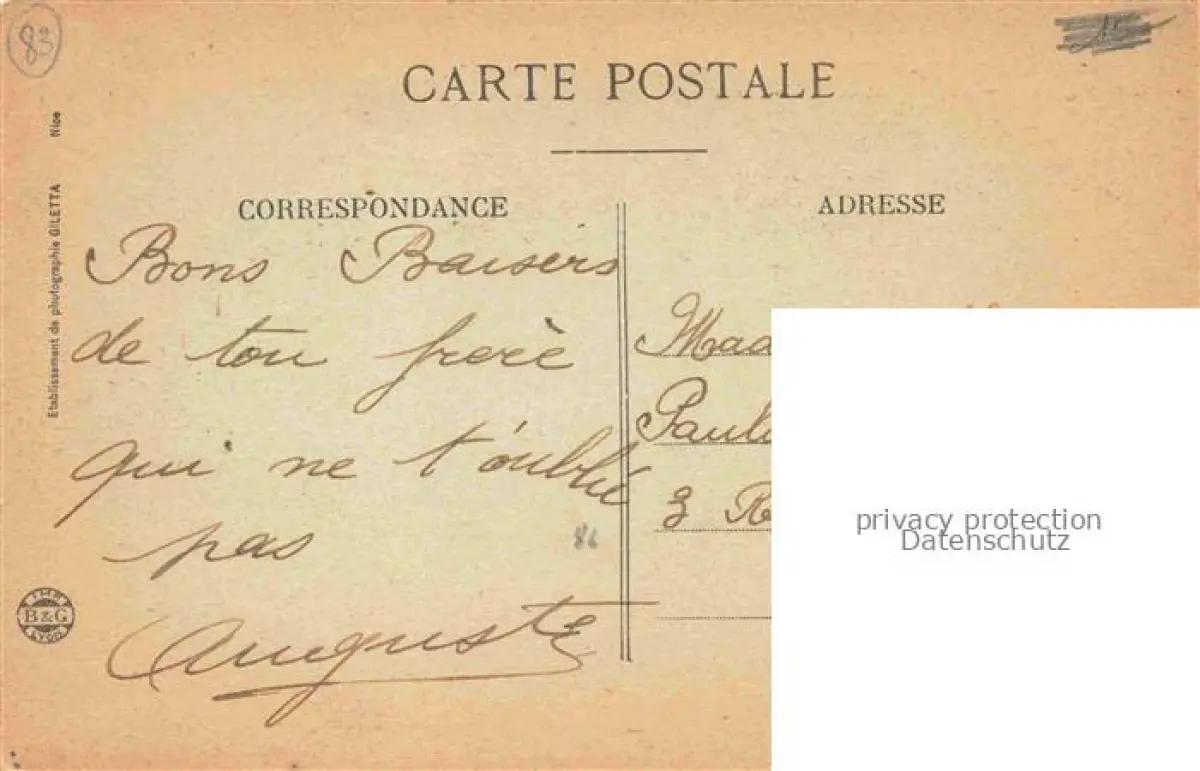 83
CARTE POSTALE
CORRESPONDANCE
Bons Baisers
de ton frere
qui ne t'oublie
pas
Auguste
86
ADRESSE
3 R
privacy protection
Datenschutz
Etablissement de photographie GILETTA Nice
IMP. B&G LYON